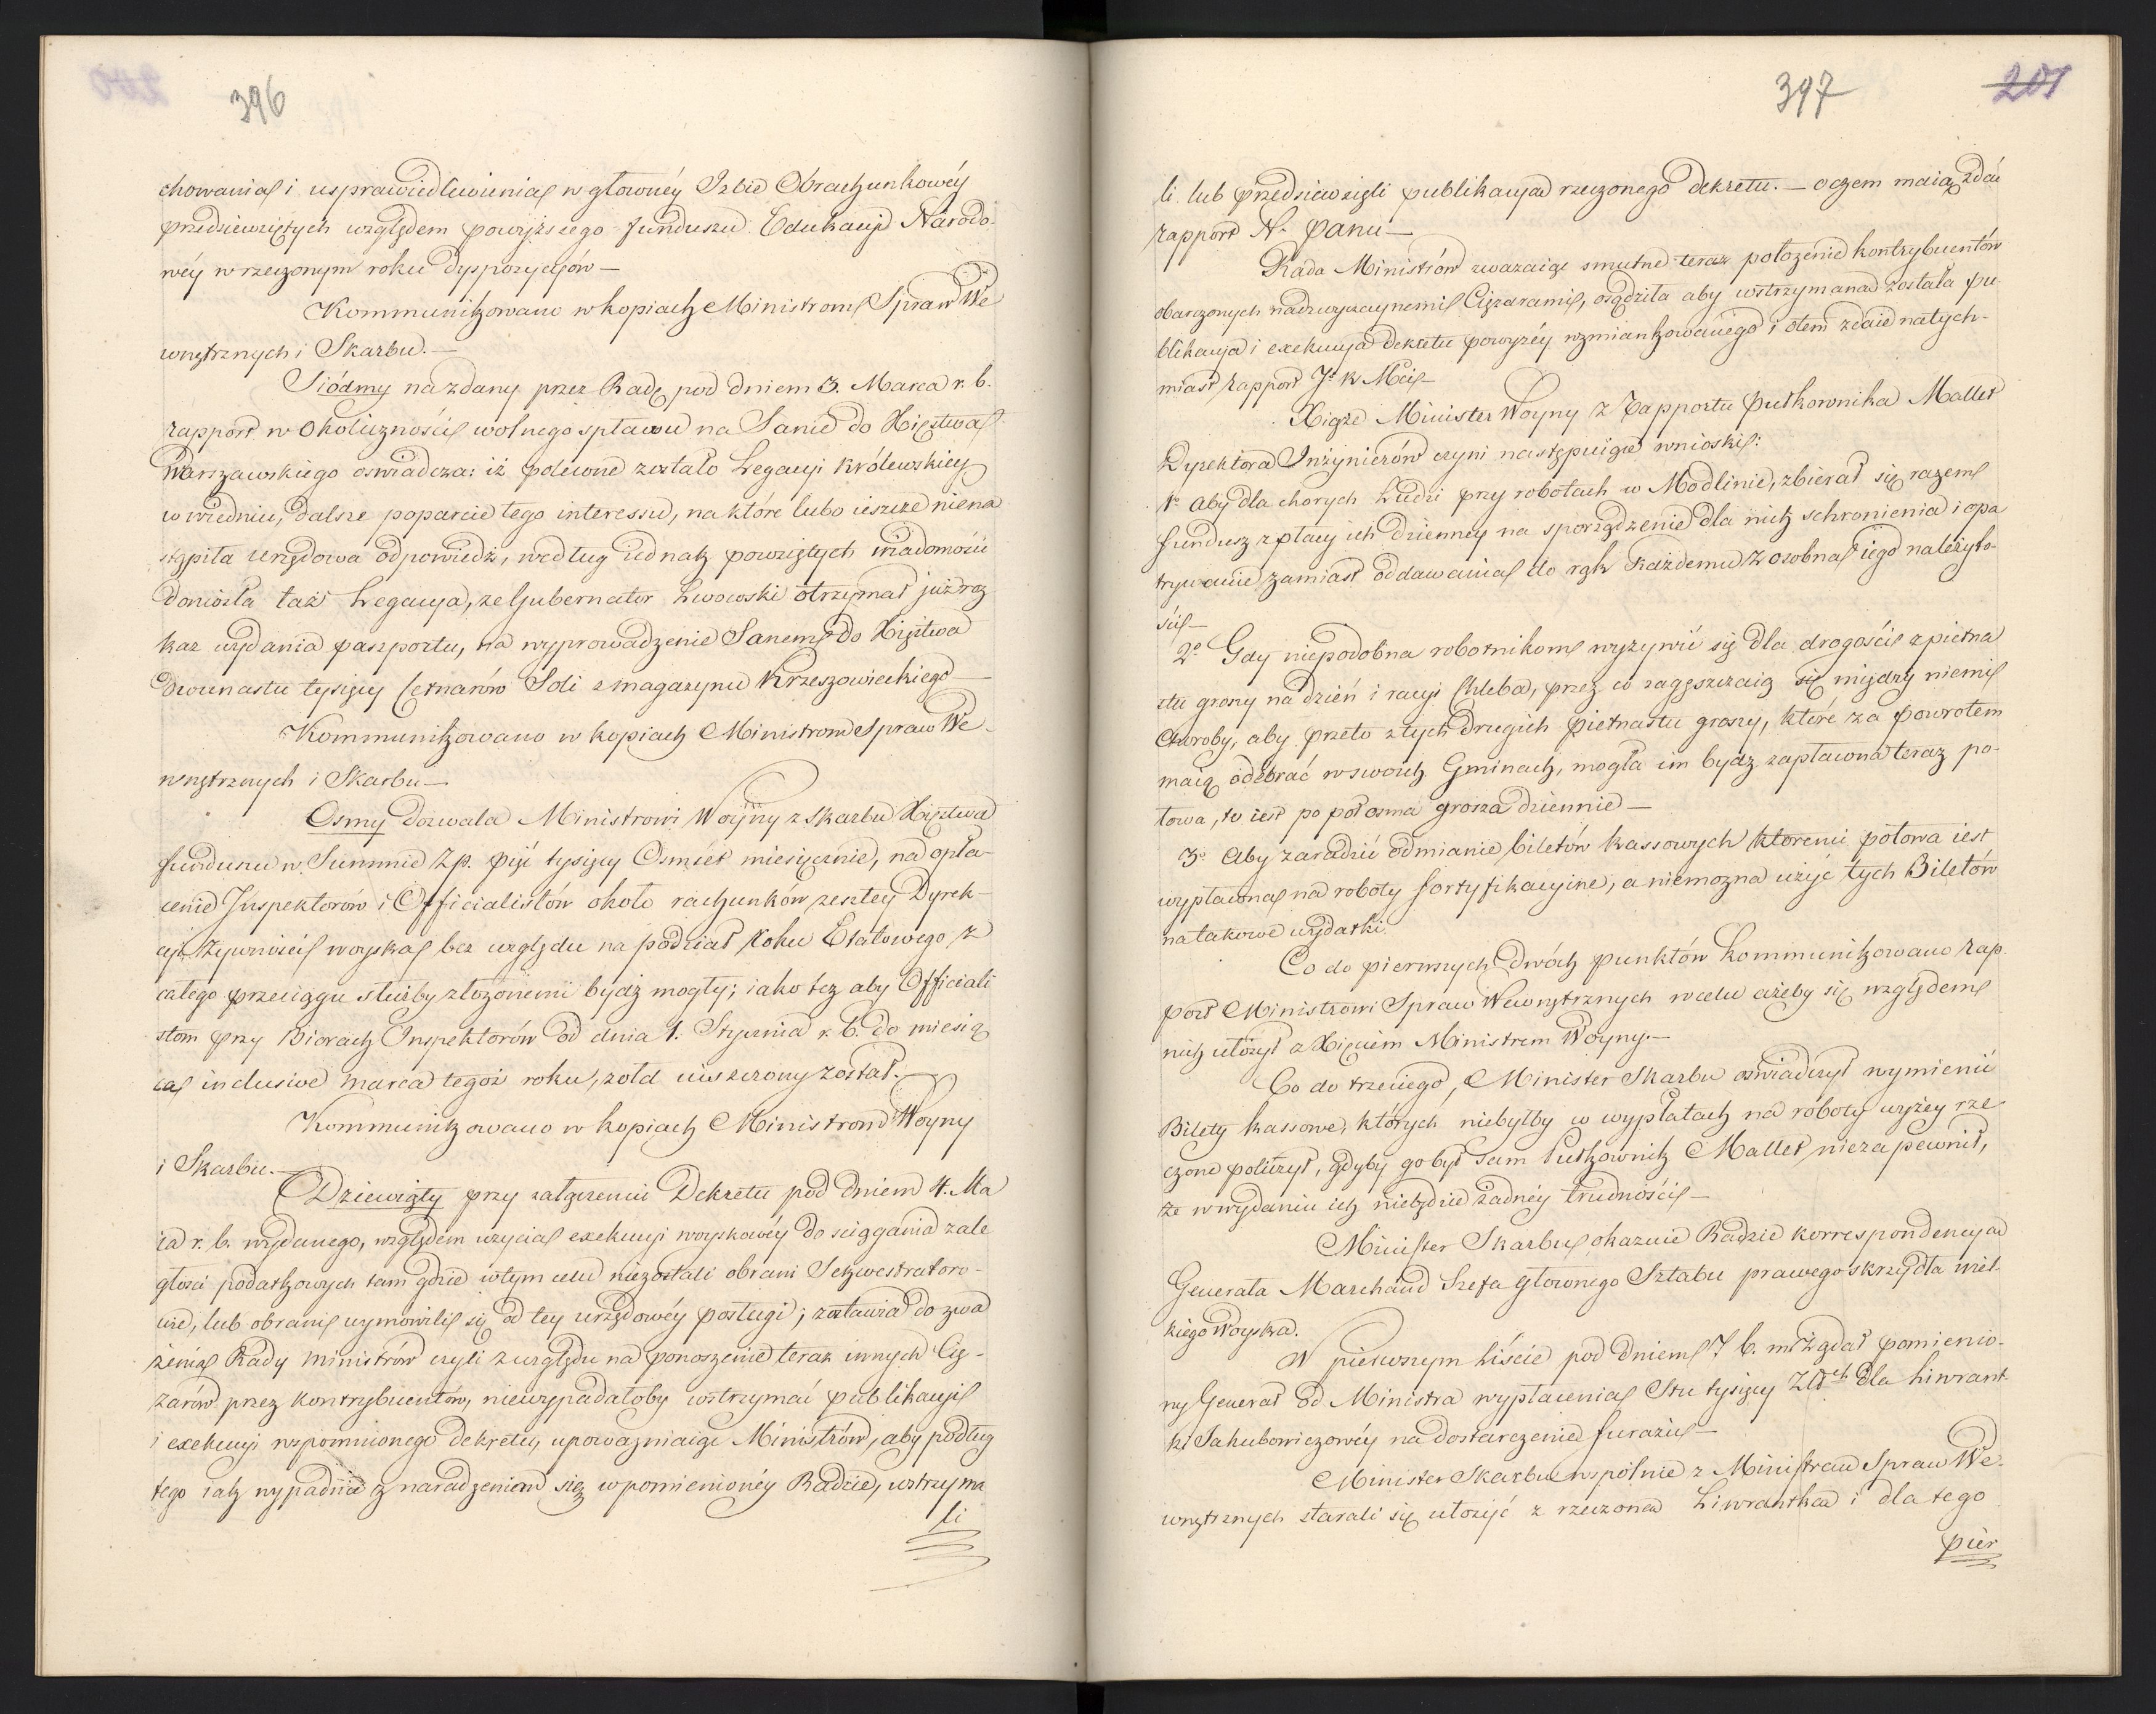 396
chowania i usprawiedliwienia w główney Izbie Obrachunkowéy
przedsiewziętych względem powyższego funduszu Edukacyi Narodo-
wéy w rzeczonym roku dyspozycyów —
Kommunikowano w kopiach Ministrom Spraw We
wnętrznych i Skarbu. —
Siódmy na zdany przez Radę pod dniem 3. Marca r. b.
rapport w okoliczności wolnego spławu na Sanie do Xięstwa
Warszawskiego oswiadcza: iż polecone zostało Legacyi Królewskiey
w Wiedniu, dalsze poparcie tego interessu, na które lubo ieszcze niena
stąpiła urzędowa odpowiedź, według iednak powziętych wiadomości
doniosła taż Legacya, że Gubernator Lwowski otrzymał już roz
kaz wydania paszportu, na wyprowadzenie Sanem do Xięstwa
dwunastu tysięcy Cetnarów Soli z magazynu Krzeszowieckiego —
Kommunikowano w kopiach Ministrom Spraw We-
wnętrznych i Skarbu —
Osmy dozwala Ministrowi Woyny z Skarbu Xięstwa
funduszu w Summie Zp. pięć tysięcy Osmset miesięcznie, na opła-
cenie Inspektorów i Officialistów około rachunków zeszłey Dyrek-
cyi Żywności woyska bez względu na podział Roku Etatowego z
całego przeciągu służby złożonemi bydź mogły; iako też aby Officiali
stom przy Biorach Inspektorów od dnia 1. Stycznia r. b. do miesią
ca inclusive marca tegoż roku, żołd uiszczony został. —
Kommunikowano w kopiach Ministrom Woyny
i Skarbu. —
Dziewiąty przy załączeniu Dekretu pod dniem 4. Ma
ia r. b. wydanego, względem użycia exekucyi woyskowéy do sciągania zale
głości podatkowych tam gdzie w tym celu niezostali obrani Sekwestratoro-
wie, lub obrani wymówili się od tey urzędowéy posługi; zostawia do zwa
żenia Rady Ministrów czyli z względu na ponoszenie teraz innych Cię-
żarów przez kontrybuentów, niewypadałoby wstrzymać publikacyi
i exekucyi wspomnionego dekretu, upoważniaiąc Ministrów, aby podług
tego iak wypadnie z naradzeniem się w pomienionéy Radzie, wstrzyma
li
397
201
li lub przedsiewzięli publikacyą rzeczonego dekretu. — o czem maią zdać
rapport N. Panu —
Rada Ministrów zważaiąc smutne teraz położenie kontrybuentów
obarczonych nadzwyczaynemi Ciężarami, osądziła aby wstrzymaną została pu-
blikacya i exekucya dekretu powyżéy wzmiankowanego i o tem zdaie natych-
miast rapport J. K. Mci —
Xiąże Minister Woyny z rapportu Pułkownika Mallet
Dyrektora Inżynierów czyni następuiące wnioski:
1o Aby dla chorych Ludzi przy robotach w Modlinie, zbierał się razem
fundusz z płacy ich dzienney na sporządzenie dla nich schronienia i opa
trywanie zamiast oddawania do rąk każdemu z osobna iego należyto-
ści —
2o Gdy niepodobna robotnikom wyżywić się dla drogości z piętna
stu groszy na dzień i racyi Chleba, przez co zagęszczaią się między niemi
Choroby, aby przeto z tych drugich piętnastu groszy, które za powrotem
maią odebrać w swoich Gminach, mogła im bydz zapłacona teraz po-
łowa, to iest po pół osma grosza dziennie —
3o Aby zaradzić odmianie biletów kassowych któremi połowa iest
wypłacona na roboty fortyfikacyine, a niemożna użyć tych Biletów
na takowe wydatki.
Co do pierwszych dwóch punktów kommunikowano rap-
port Ministrowi Spraw Wewnętrznych w celu ażeby się względem
nich ułożył z Xięciem Ministrem Woyny. —
Co do trzeciego, Minister Skarbu oświadczył wymienić
Bilety kassowe, których niebyłby w wypłatach na roboty wyżey rze
czone policzył, gdyby go był sam Pułkownik Mallet niezapewnił,
że w wydaniu ich niebędzie żadnéy trudności —
Minister Skarbu okazuie Radzie korrespondencyą
Generała Marchand Szefa głównego Sztabu prawego skrzydła wiel-
kiego Woyska.
W pierwszym Liście pod dniem 7 b. m. żądał pomienio-
ny Generał od Ministra wypłacenia Stu tysięcy Złch dla liwrant
ki Jakubowiczowéy na dostarczenie furażu —
Minister Skarbu wspólnie z Ministrem Spraw We-
wnętrznych starali się ułożyć z rzeczoną Liwrantką i dla tego
pier